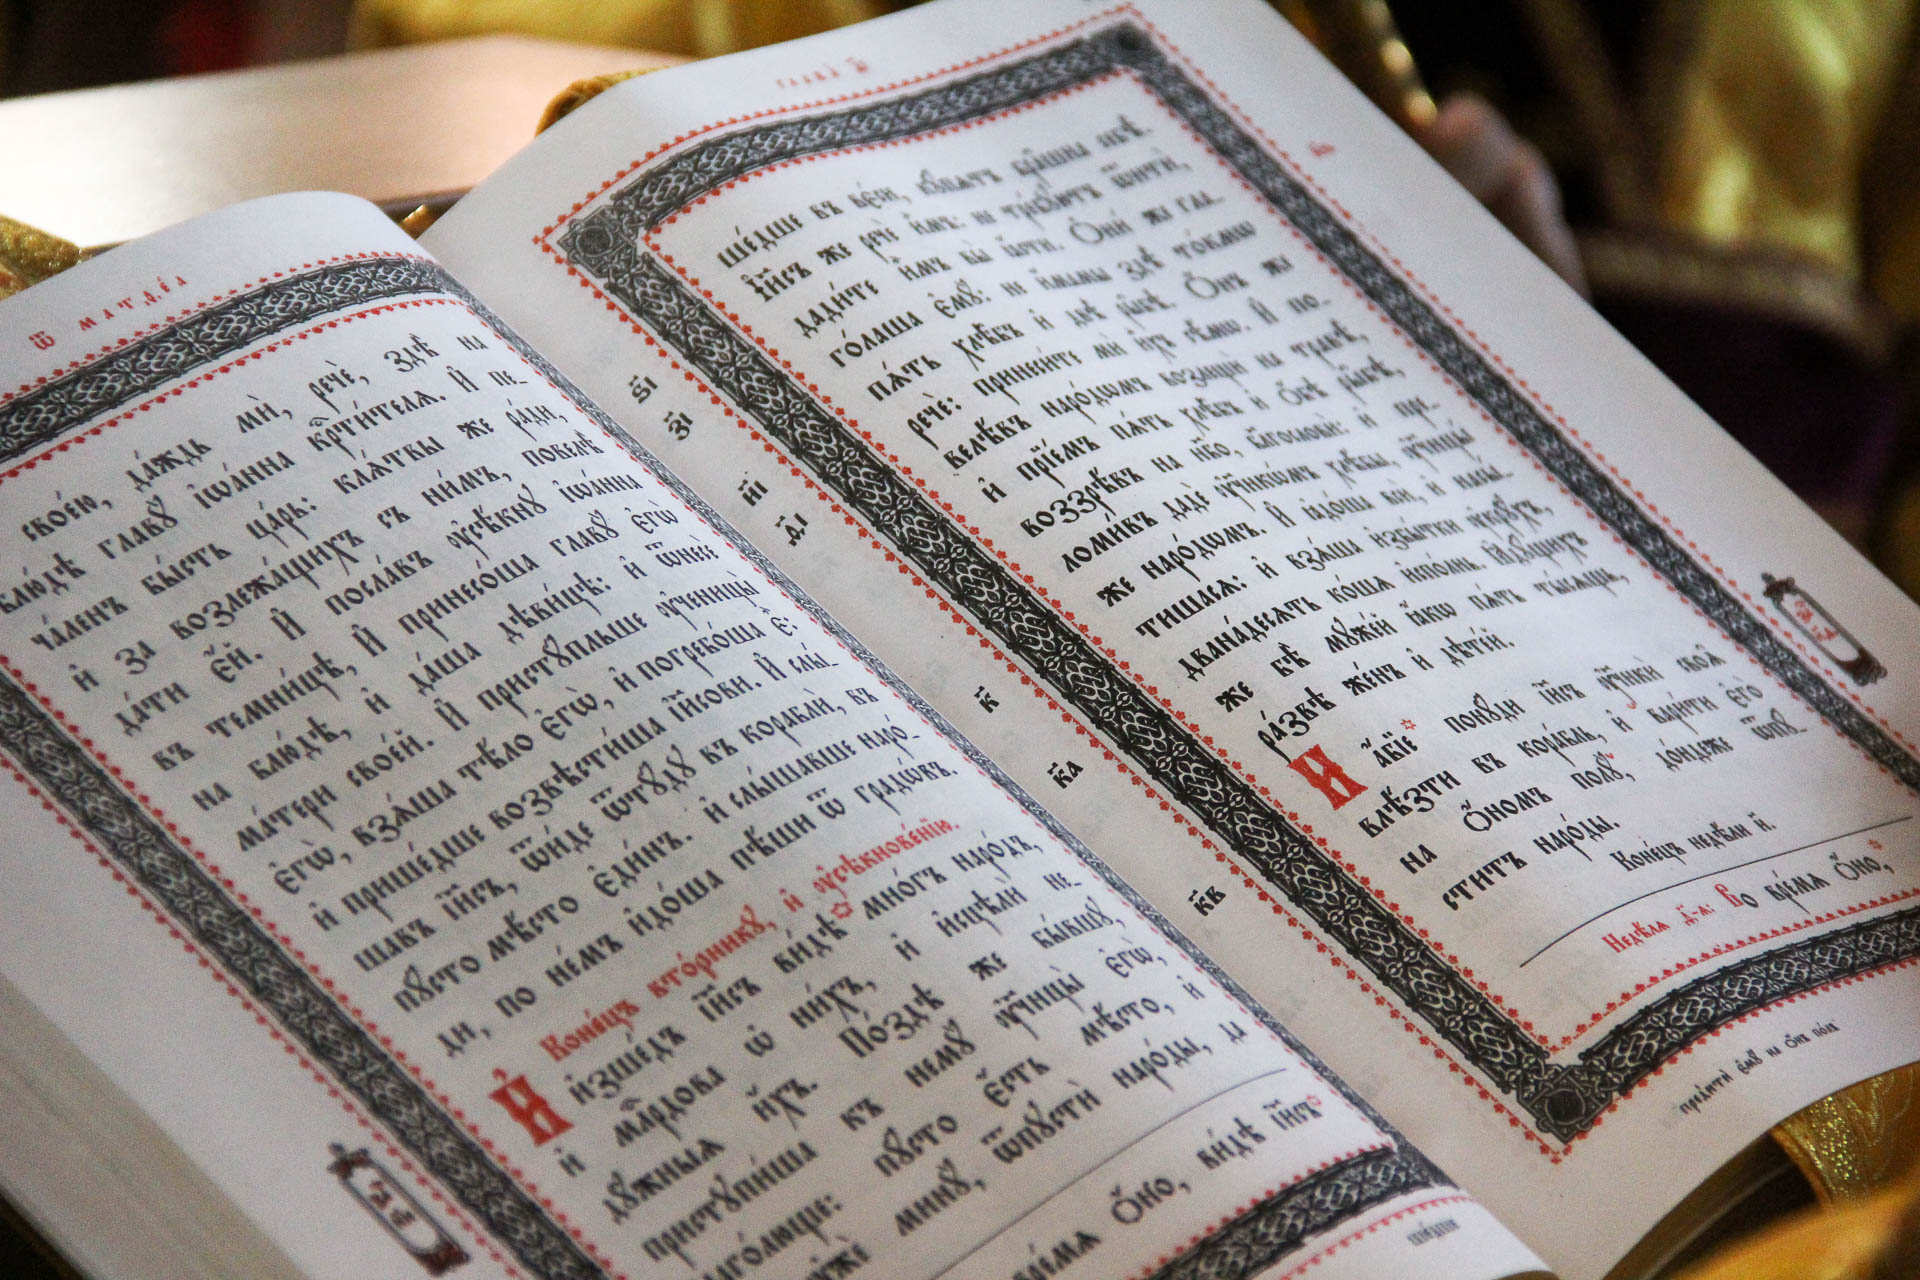 ѿ матѳеа
своею̀, да́ждь мѝ, речѐ, здѣ̀ на
блю́дѣ главꙋ̀ і҆ѡа́нна крⷭ҇ти́телѧ. И҆ пе-
ча́ленъ бы́сть ца́рь: клѧ́твы же ра́ди,
и҆ за возлежа́щихъ съ ни́мъ, повелѣ̀
да́ти є҆́й. И҆ посла́въ ᲂу҆сѣ́кнꙋ і҆ѡа́нна
въ темни́цѣ, И҆ принесо́ша главꙋ̀ є҆гѡ̀
на блю́дѣ, и҆ да́ша дѣви́цѣ: и҆ ѿнесѐ
ма́тери свое́й. И҆ пристꙋ́пльше ᲂу҆ченицы̀
є҆гѡ̀, взѧ́ша тѣ́ло є҆гѡ̀, и҆ погребо́ша є҆̀:
и҆ прише́дше возвѣсти́ша і҆и҃сови. И҆ слы́-
шавъ і҆и҃съ, ѿи́де ѿтꙋ́дꙋ въ кораблѝ, въ
пꙋ́сто мѣ́сто є҆ди́нъ. и҆ слы́шавше наро́-
ди, по не́мъ и҆до́ша пѣ́ши ѿ градѡ́въ.
Коне́цъ вто́рникꙋ, и҆ ᲂу҆сѣкнове́нїю.
И҆ и҆зше́дъ і҆и҃съ ви́дѣ мно́гъ наро́дъ,
и҆ млⷭ҇рдова ѡ҆ ни́хъ, и҆ и҆сцѣлѝ не-
дꙋ́жныѧ и҆́хъ. По́здѣ же бы́вшꙋ,
пристꙋпи́ша къ немꙋ̀ ᲂу҆чн҃цы̀ є҆гѡ̀,
глаго́люще: пꙋ́сто є҆́сть мѣ́сто, и҆
ᲂу҆жѐ минꙋ̀, ѿпꙋстѝ наро́ды, да
вре́мѧ ѻ҆́но, ви́дѣ і҆и҃съ
ѕ҃і
з҃і
и҃і
д҃і
к҃
к҃а
к҃в
глава̀
ше́дше въ вє́си, кꙋ́пѧтъ бра́шна себѣ̀.
І҆и҃съ же речѐ и҆̀мъ: не тре́бꙋютъ ѿитѝ,
дади́те и҆̀мъ вы̀ ꙗ҆́сти. Ѻ҆ни́ же гла-
го́лаша є҆мꙋ̀: не и҆́мамы здѣ̀ то́кмѡ
пѧ́ть хлѣ́бъ и҆ двѣ̀ ры̑бѣ. Ѻ҆́нъ же
речѐ: принеси́те мѝ и҆̀хъ сѣ́мѡ. И҆ по-
велѣ́въ наро́дѡмъ возлещѝ на травѣ̀,
и҆ прїе́мъ пѧ́ть хлѣ́бъ и҆ ѻ҆́бѣ ры̑бѣ,
воззрѣ́въ на нб҃о, благословѝ: и҆ пре-
ломи́въ дадѐ ᲂу҆чн҃кѡ́мъ хлѣ́бы, ᲂу҆чн҃цы́
же наро́дѡмъ. И҆ ꙗ҆до́ша всѝ, и҆ насы́-
тишасѧ: и҆ взѧ́ша и҆збы́тки ᲂу҆крꙋ̑хъ,
двана́десѧть ко́шѧ и҆спо́лнь. Ꙗ҆дꙋ́щихъ
же бѣ̀ мꙋже́й ꙗ҆́кѡ пѧ́ть ты́сѧщъ,
ра́звѣ же́нъ и҆ дѣте́й.
И҆ а҆́бїе понꙋ́ди і҆и҃съ ᲂу҆чн҃кѝ своѧ̑
влѣ́зти въ кора́бль, и҆ вари́ти є҆го̀
на ѻ҆́номъ полꙋ̀, до́ндеже ѿпꙋ-
стит̾ъ наро́ды.
Коне́цъ недѣ́ли и҃.
Недѣ́лѧ д҃-ѧ: Во вре́мѧ ѻ҆́но,
преитѝ є҆мꙋ̀ на ѻ҆́нъ по́лъ